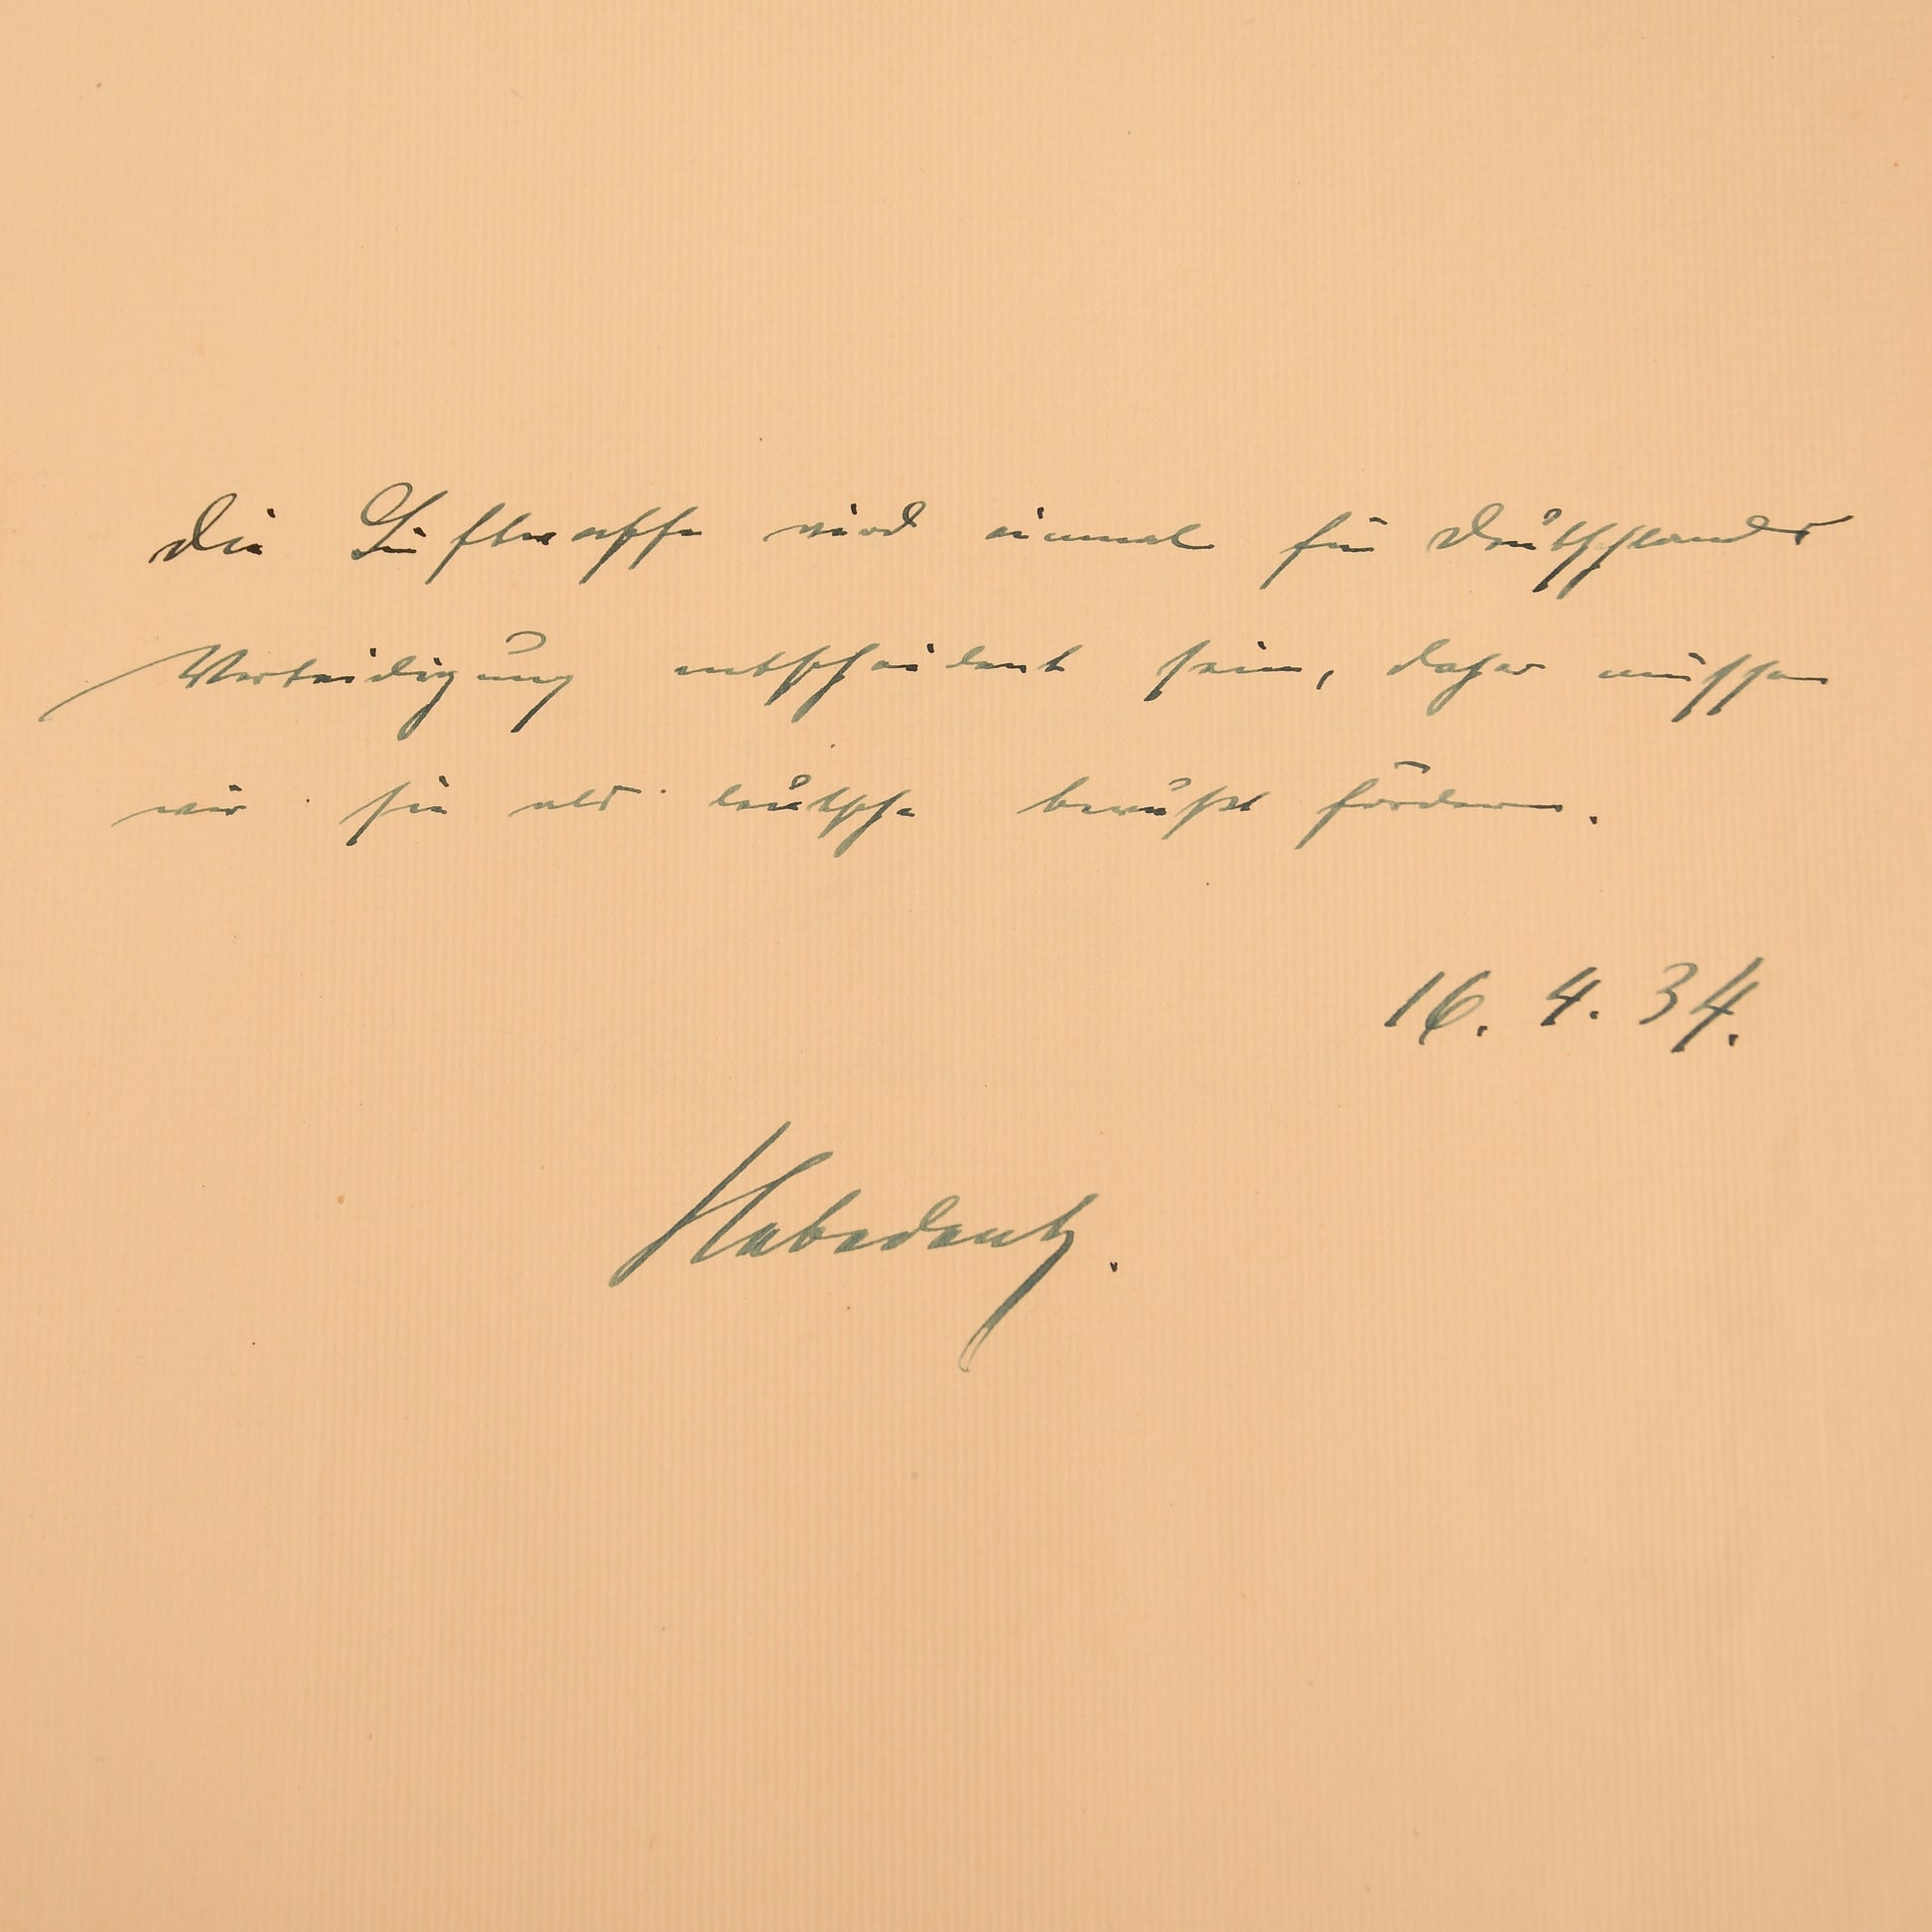 Die Luftwaffe wird einmal für Deutschlands
Verteidigung entscheident sein, daher müssen
wir sie als deutsche bewußt fördern.
16. 4. 34.
Habedank.